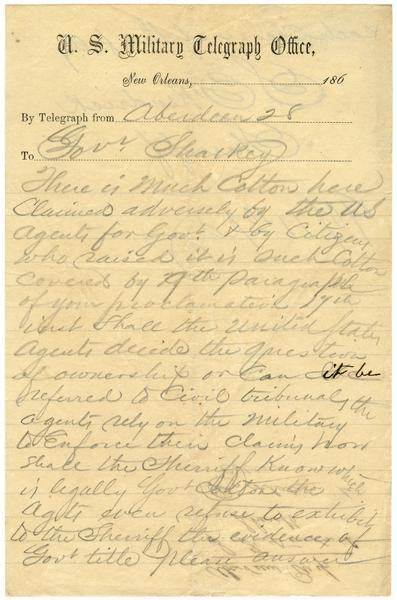 U. S. Military Telegraph Office,
New Orleans, 186
By Telegraph from Aberdeen 28
To Govr Sharkey
There is Much Cotton here
Claimed adversely by the US
Agents for Govt & by Citizens
who raised it is such Cotton
covered by 9th Paragraph
of your proclamation
inst shall the United States
Agents decide the question
of ownership or can it be
referred to Civil tribunals the
agents rely on the Military
to Enforce their claims how
shall the Sherriff Know which
is legally Govt Cotton the
Agts even refuse to exhibit
to the Sherriff the evidences of
Govt title please answer